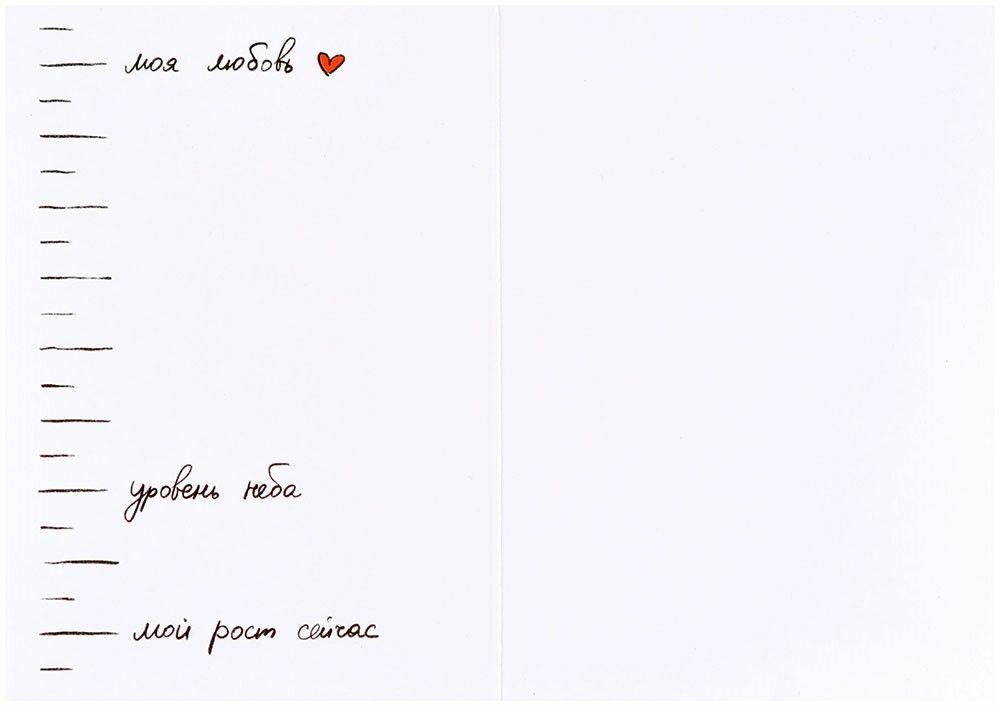 моя любовь
уровень неба
мой рост сейчас